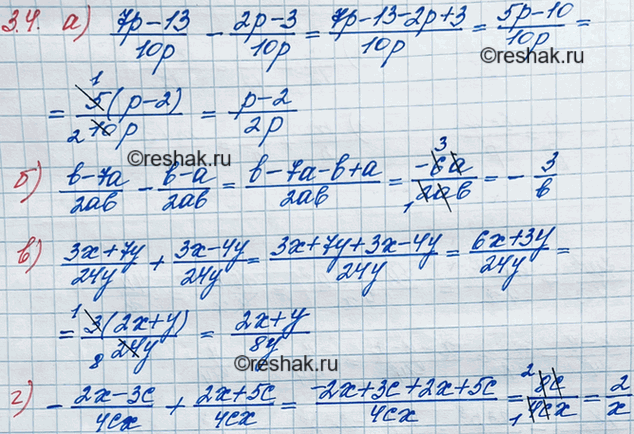 3.4. а) (7p-13)/(10p) - (2p-3)/(10p) = (7p-13-2p+3)/(10p) = (5p-10)/(10p) =
©reshak.ru
= (5(p-2))/(10p) = (p-2)/(2p)
б) (b-7a)/(2ab) - (b-a)/(2ab) = (b-7a-b+a)/(2ab) = (-6a)/(2ab) = - 3/b
©reshak.ru
в) (3x+7y)/(24y) + (3x-4y)/(24y) = (3x+7y+3x-4y)/(24y) = (6x+3y)/(24y) =
= (3(2x+y))/(24y) = (2x+y)/(8y)
©reshak.ru
г) - (2x-3c)/(4cx) + (2x+5c)/(4cx) = (-2x+3c+2x+5c)/(4cx) = (8c)/(4cx) = 2/x